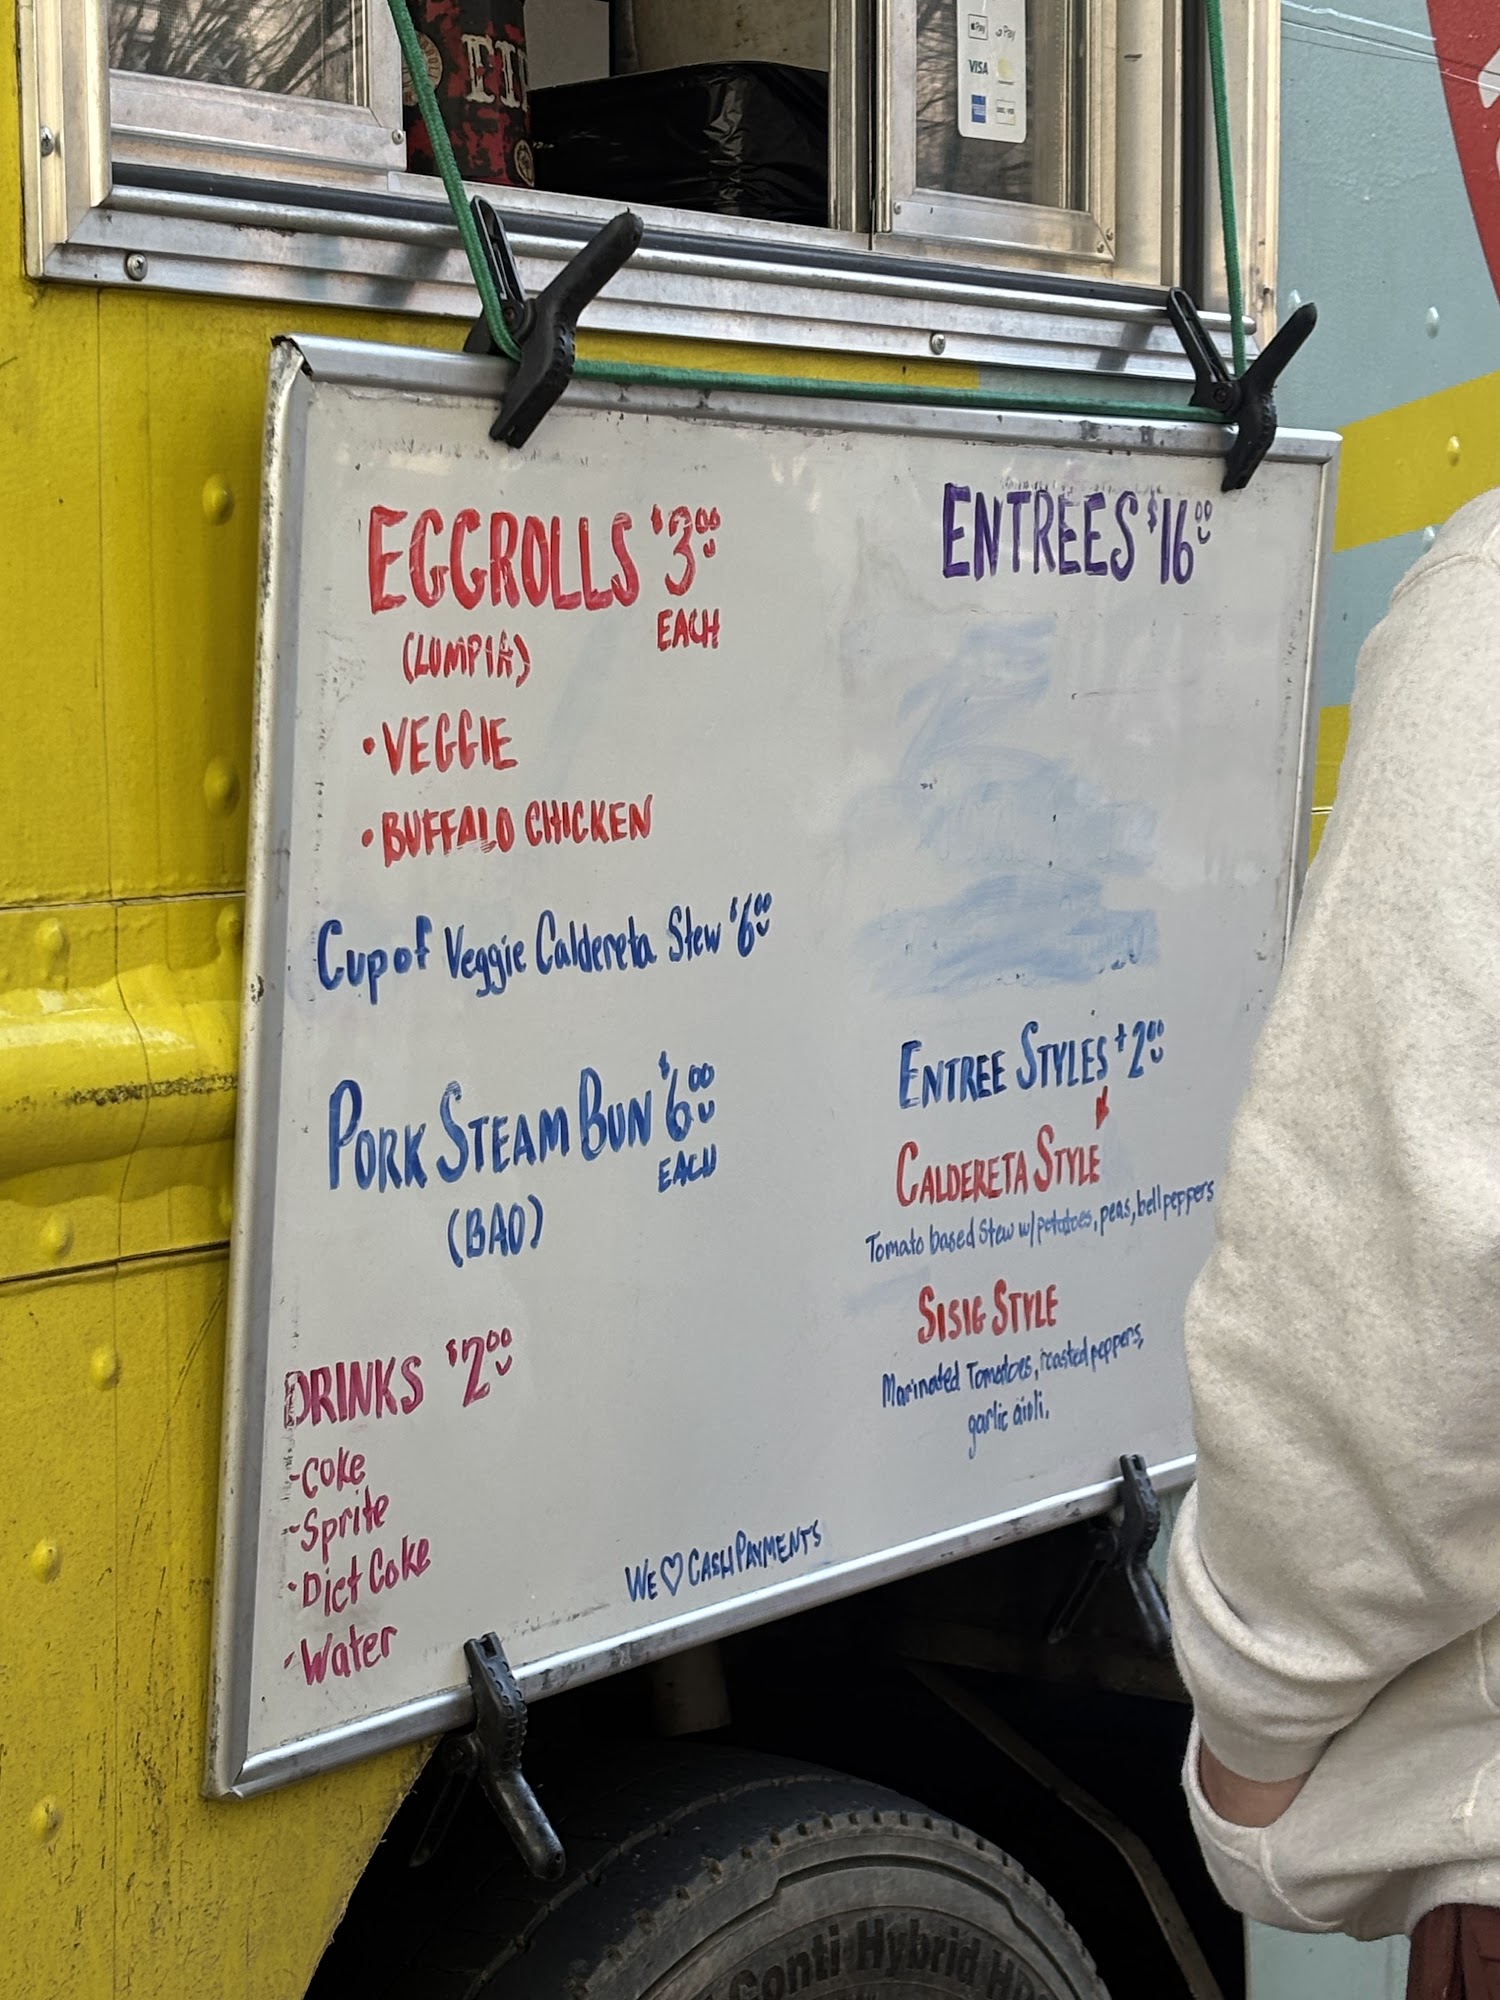 Pay
Pay
VISA
EGGROLLS $3.00
EACH
(LUMPIA)
• VEGGIE
• BUFFALO CHICKEN
Cup of Veggie Caldereta Stew $6.00
PORK STEAM BUN $6.00
EACH
(BAO)
DRINKS $2.00
- Coke
- Sprite
- Diet Coke
- Water
WE ♡ CASH PAYMENTS
ENTRÉES $16.00
ENTREE STYLES +2.00
CALDERETA STYLE
Tomato based Stew w/ potatoes, peas, bell peppers
SISIG STYLE
Marinated Tomatoes, roasted peppers,
garlic aioli.
Conti Hybrid